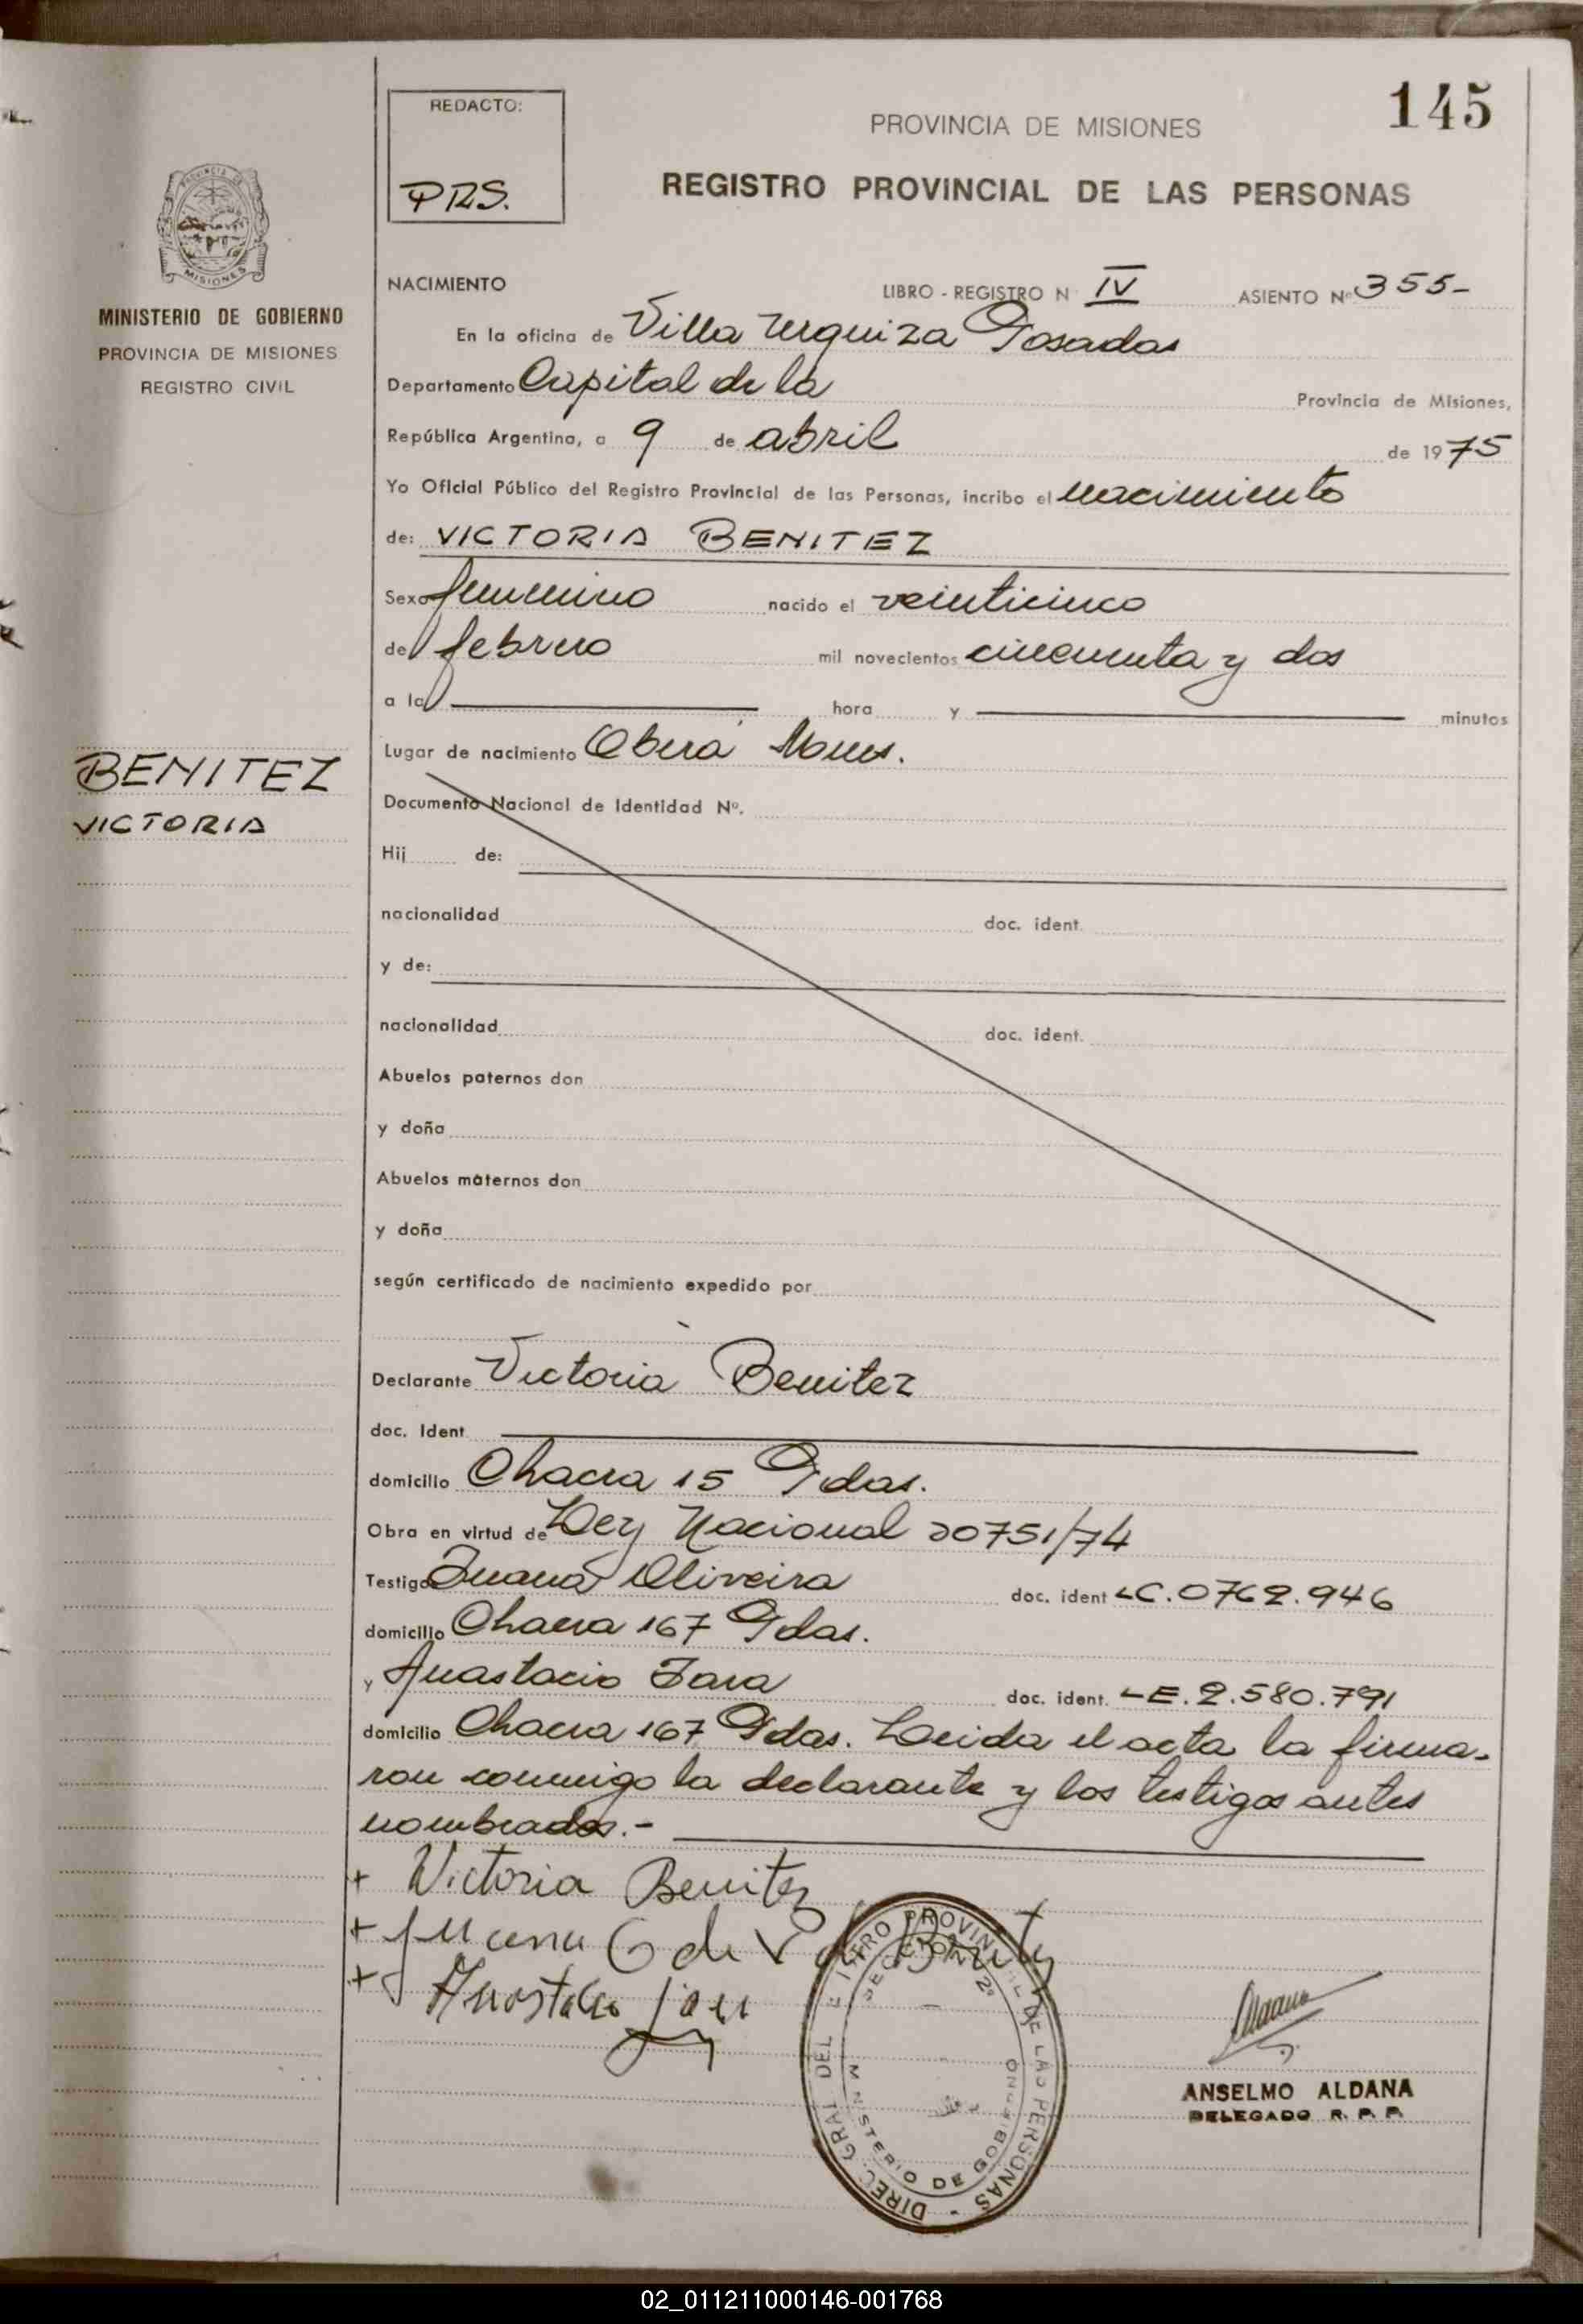 145
REDACTO:
PRS.
PROVINCIA DE MISIONES
REGISTRO PROVINCIAL DE LAS PERSONAS
MISIONES
MINISTERIO DE GOBIERNO
PROVINCIA DE MISIONES
REGISTRO CIVIL
BENITEZ
VICTORIA
NACIMIENTO LIBRO - REGISTRO N IV ASIENTO Nº 355-
En la oficina de Villa Urquiza Posadas
Departamento Capital de la Provincia de Misiones,
República Argentina, a 9 de abril de 1975
Yo Oficial Público del Registro Provincial de las Personas, incribo el nacimiento
de: VICTORIA BENITEZ
Sexo femenino nacido el veinticinco
de febrero mil novecientos cincuenta y dos
a la hora y minutos
Lugar de nacimiento Oberá Mnes.
Documento Nacional de Identidad Nº.
Hij de:
nacionalidad doc. ident.
y de:
nacionalidad doc. ident.
Abuelos paternos don
y doña
Abuelos maternos don
y doña
según certificado de nacimiento expedido por
Declarante Victoria Benitez
doc. Ident
domicilio Chacra 15 Pdas.
Obra en virtud de Ley Nacional 20751/74
Testigos Juana Oliveira doc. ident LC.0762.946
domicilio Chacra 167 Pdas.
y Anastacio Jara doc. ident. LE.2.580.791
domicilio Chacra 167 Pdas. Leida el acta la firma-
ron conmigo la declarante y los testigos antes
nombrados.-
+ Victoria Benitez
+ Juana de
+ Anastacio Jara
DIREC. GRAL DEL REGISTRO PROVINCIAL DE LAS PERSONAS -
SECCION 2º
MINISTERIO DE GOBIERNO
ANSELMO ALDANA
DELEGADO R. P. P.
02_011211000146-001768